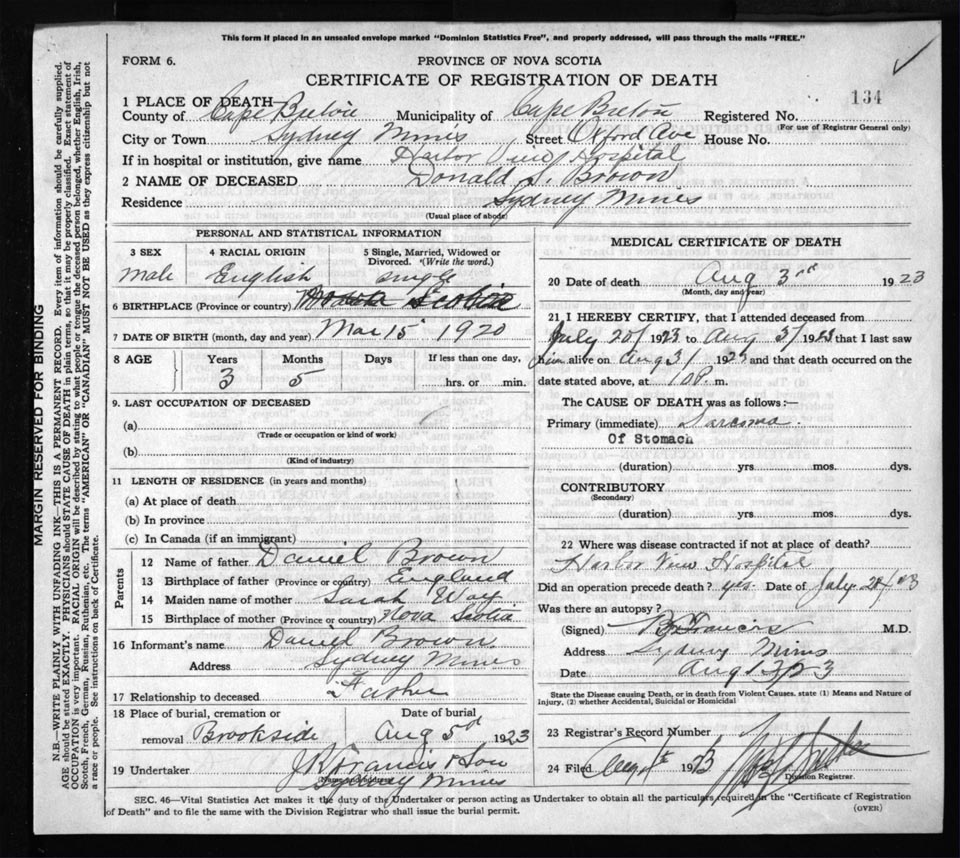 This form if placed in an unsealed envelope marked "Dominion Statistics Free", and properly addressed, will pass through the mails "FREE."
FORM 6.
PROVINCE OF NOVA SCOTIA
CERTIFICATE OF REGISTRATION OF DEATH
134
1 PLACE OF DEATH
County of Cape Breton Municipality of Cape Breton Registered No.
(For use of Registrar General only)
City or Town Sydney Mines Street Oxford Ave House No.
If in hospital or institution, give name Harbor View Hospital
2 NAME OF DECEASED Donald S. Brown
Residence Sydney Mines
(Usual place of abode)
PERSONAL AND STATISTICAL INFORMATION
3 SEX 4 RACIAL ORIGIN 5 Single, Married, Widowed or Divorced. (Write the word.)
Male English single
6 BIRTHPLACE (Province or country) Nova Scotia
7 DATE OF BIRTH (month, day and year) Mar 15 1920
8 AGE Years Months Days If less than one day,
3 5 hrs. or min.
9. LAST OCCUPATION OF DECEASED
(a)
(Trade or occupation or kind of work)
(b)
(Kind of industry)
11 LENGTH OF RESIDENCE (in years and months)
(a) At place of death
(b) In province
(c) In Canada (if an immigrant)
Parents
12 Name of father Daniel Brown
13 Birthplace of father (Province or country) England
14 Maiden name of mother Sarah Way
15 Birthplace of mother (Province or country) Nova Scotia
16 Informant's name Daniel Brown
Address Sydney Mines
17 Relationship to deceased Father
18 Place of burial, cremation or removal Brookside
Date of burial Aug 5 1923
19 Undertaker Francis & Son
(Name and address)
Sydney Mines
MEDICAL CERTIFICATE OF DEATH
20 Date of death Aug 3rd 1923
(Month, day and year)
21 I HEREBY CERTIFY, that I attended deceased from
July 20/1923 to Aug 3/1923 that I last saw
him alive on Aug 3/1923 and that death occurred on the
date stated above, at 10 P. m.
The CAUSE OF DEATH was as follows:—
Primary (immediate) Sarcoma
Of Stomach
(duration) yrs. mos. dys.
CONTRIBUTORY
(Secondary)
(duration) yrs. mos. dys.
22 Where was disease contracted if not at place of death?
Harbor View Hospital
Did an operation precede death? yes Date of July
Was there an autopsy?
(Signed) Francis M.D.
Address Sydney Mines
Date Aug
State the Disease causing Death, or in death from Violent Causes, state (1) Means and Nature of Injury, (2) whether Accidental, Suicidal or Homicidal
23 Registrar's Record Number
24 Filed Aug 19
Division Registrar.
SEC. 46—Vital Statistics Act makes it the duty of the Undertaker or person acting as Undertaker to obtain all the particulars required in the "Certificate of Registration
of Death" and to file the same with the Division Registrar who shall issue the burial permit.
(OVER)
MARGIN RESERVED FOR BINDING
N.B.—WRITE PLAINLY WITH UNFADING INK—THIS IS A PERMANENT RECORD. Every item of information should be carefully supplied.
AGE should be stated EXACTLY. PHYSICIANS should STATE CAUSE OF DEATH in plain terms, so that it may be properly classified. Exact statement of
OCCUPATION is very important. RACIAL ORIGIN will be described by stating to what people or tongue the deceased person belonged, whether English, Irish,
Scotch, French, German, Russian, Ruthenian, etc. The terms "AMERICAN" OR "CANADIAN" MUST NOT BE USED as they express citizenship but not
a race or people. See instructions on back of Certificate.